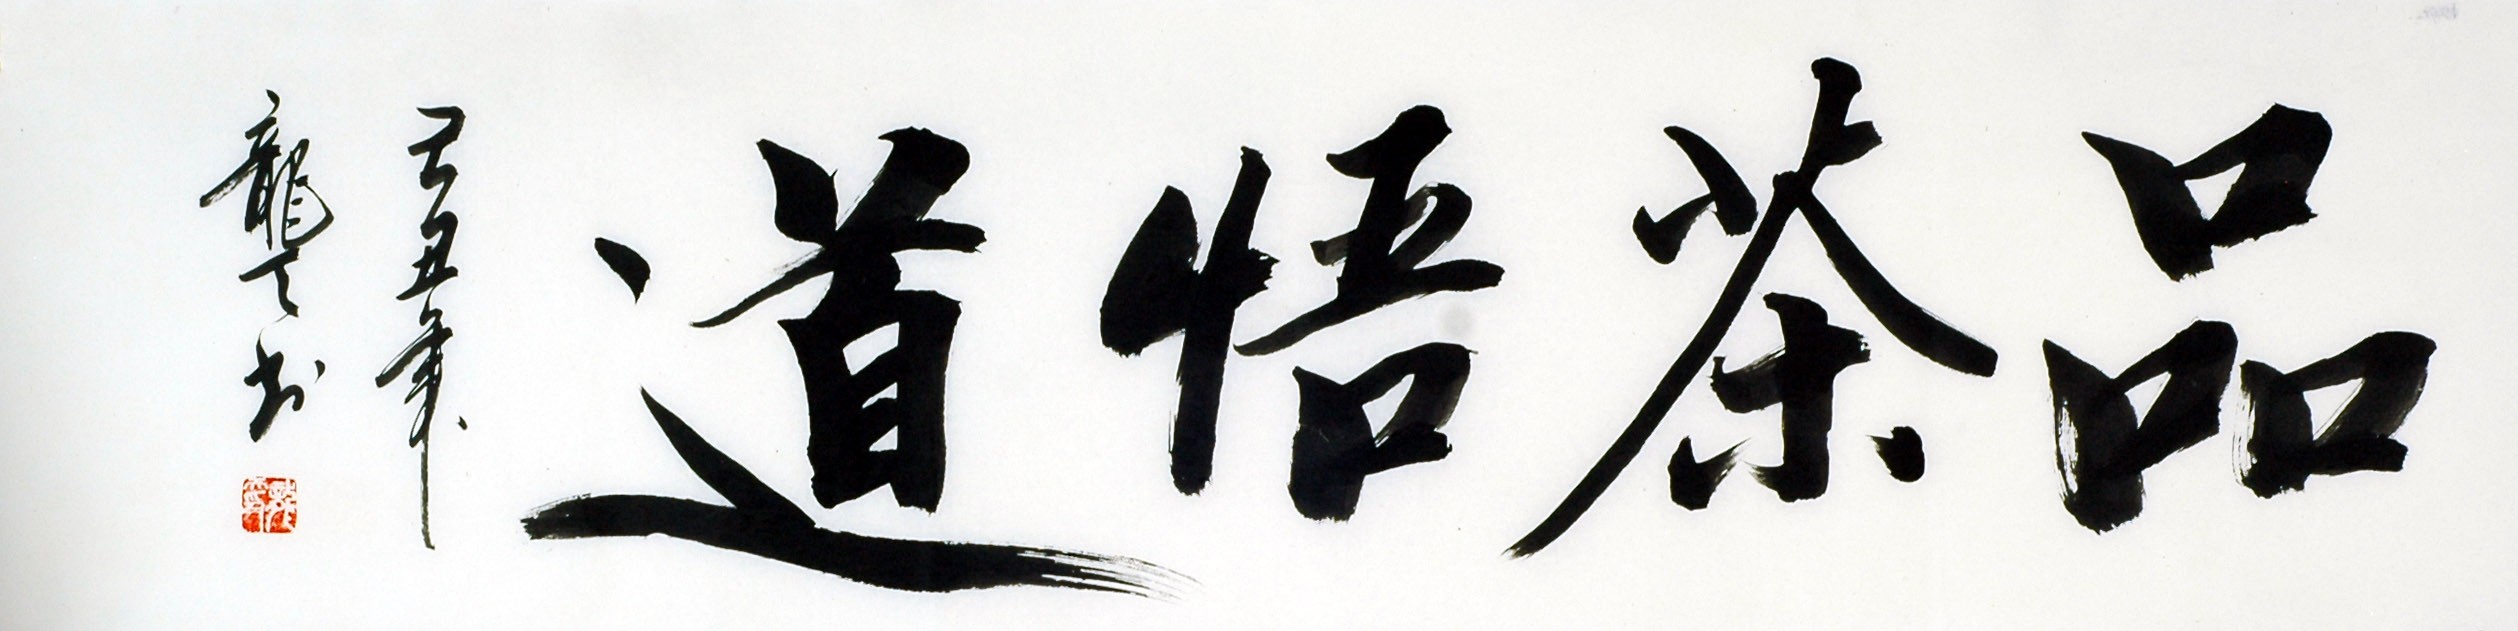 品茶悟道
己丑年
龍云书